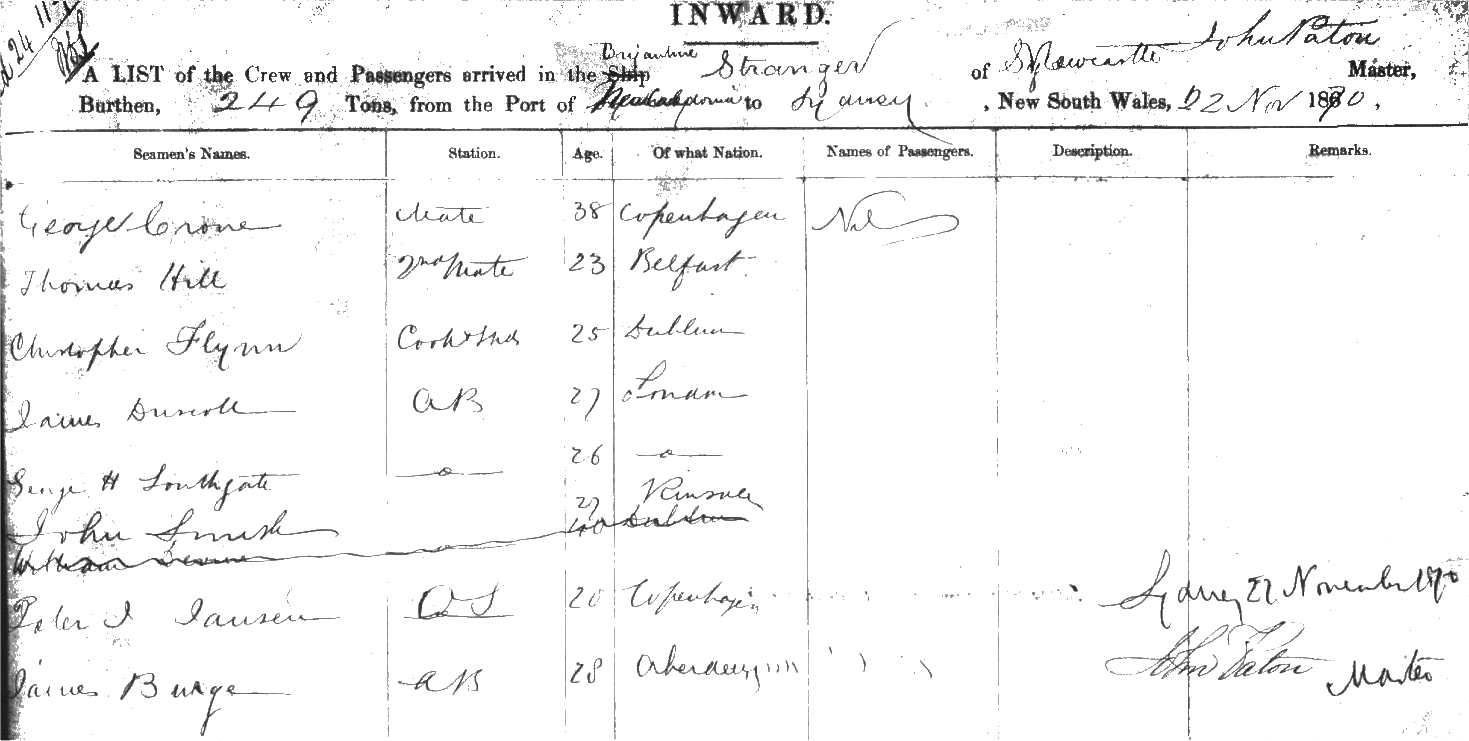 INWARD.
24 11
A LIST of the Crew and Passengers arrived in the Ship Brigantine Stranger of Newcastle John Paton Master,
Burthen, 249 Tons, from the Port of to Sydney, New South Wales, 22 Nov 1870.
Seamen's Names. Station. Age. Of what Nation. Names of Passengers. Description. Remarks.
George Crone Mate 38 Copenhagen Nil
Thomas Hill 2nd Mate 23 Belfast
Christopher Flynn Cook & Std 25 Dublin
James Driscoll AB 27 London
George H Southgate —o— 26 —o—
John Smith 27 Kinsale
William 40 Dublin
Peter J Jansen OS 20 Copenhagen Sydney 22 November 1870
James Burge AB 28 Aberdeen John Paton Master